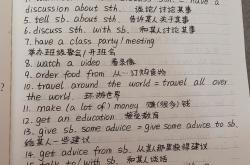 have a
discussion about sth. 谈论/讨论某事
5. tell sb. about sth. 告诉某人关于某事
6. discuss sth. with sb. 和某人讨论某事
7. have a class party/meeting
举办班级聚会/开班会
8. watch a video 看录像
9. order food from 从…订购食物
10. travel around the world = travel all over
the world. 环游世界
11. make (a lot of) money 赚(很多)钱
12. get an education 接受教育
13. give sb. some advice = give some advice to sb.
给某人一些建议
14. get advice from sb. 从某人那里获得建议
15. talk to/with sb. 和某人谈话